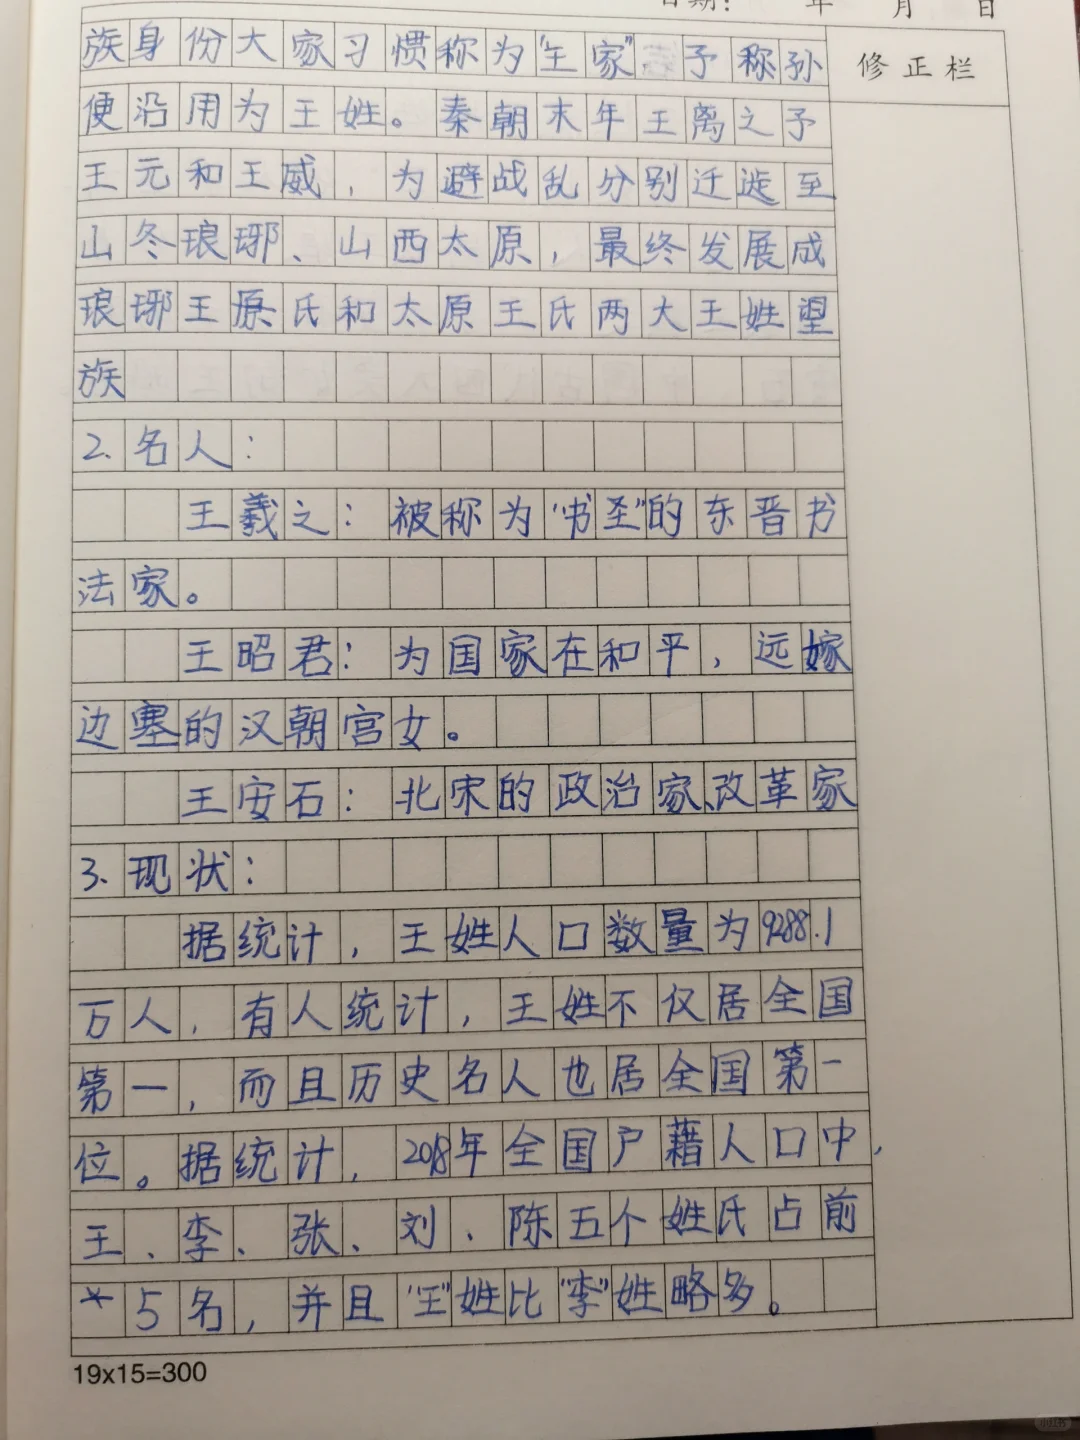 日期: 年 月 日
修正栏
族身份大家习惯称为“王家”予称孙
便沿用为王姓。秦朝末年王离之予
王元和王威,为避战乱分别迁徙至
山冬琅琊、山西太原,最终发展成
琅琊王原氏和太原王氏两大王姓望
族
2.名人:
王羲之:被称为“书圣”的东晋书
法家。
王昭君:为国家在和平,远嫁
边塞的汉朝宫女。
王安石:北宋的政治家、改革家
3.现状:
据统计,王姓人口数量为9288.1
万人,有人统计,王姓不仅居全国
第一,而且历史名人也居全国第一
位。据统计,2018年全国户藉人口中,
王、李、张、刘、陈五个姓氏占前
5名,并且“王”姓比“李”姓略多。
19x15=300